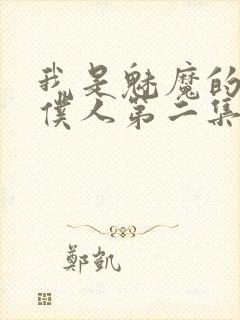 我是魅魔的
僕人第二集
鄭凱